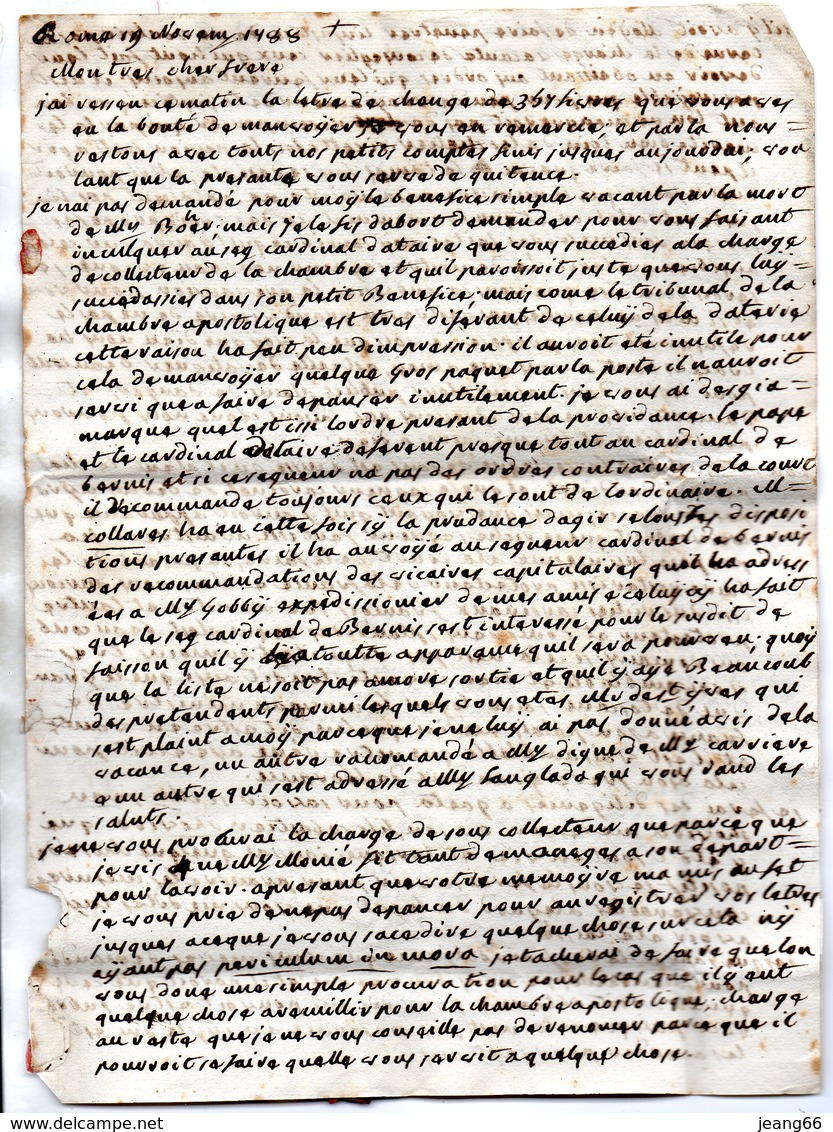 Rome 19 Novem 1788 +
Mon tres cher frere
jai ressu ce matin la letre de change de 367 livres que vous aves
eu la bonté de manvoÿer je vous en remercie; et par la nous=
restons avec touts nos petits comptes finis jusques aujourdui; vou
lant que la presante vous serve de quitence.
je nai pas demandé pour moÿ le benefice simple vacant par la mort
de Mr Boher; mais je le fis dabort demander pour vous faisant
inculquer au seg cardinal dataire que vous succedies a la charge
de collecteur de la chambre et quil paroissoit juste que vous luÿ
succedassies dans son petit Benefice; mais come le tribunal de la
chambre apostolique est tres diferant de celuÿ de la daterie
cette raison ha fait peu dimpression. il auroit eté inutile pour
cela de manvoÿer quelque Gros paquet par la poste il nauroit
servi que a faire depanser inutilement. je vous ai desgia=
marque quel est issi lordre presant de la providance. le pape
et le cardinal dataire deferent presque tout au cardinal de
bernis et si ce segneur na pas des ordres contraires de la court
il recommande toujours ceux qui le sont de lordinaire. M=
collares ha eu cette fois iÿ la prudance dagir selon les disposi
tions presantes il ha anvoÿé au segneur cardinal de bernis
des recommandations des vicaires capitulaires quil ha adres
ées a Mr Gobbÿ expedissionier de mes amis e celuÿ ÿ ha fait
que le seg cardinal de Bernis est interessé pour le susdit de
faisson quil ÿ a toutte apparance quil sera pourveu; quoÿ
que la liste ne soit pas ancore sortie et quil ÿ aÿe Beaucoub
des pretendents parmi lesquels vous etes, Mr dest ÿves qui
sest plaint a moÿ parce que je ne luÿ ai pas donné avis de la
vacance, un autre racomandé a Mr digne de Mr carriere
e un autre qui sest adressé a Mr Langlada qui vous rand les
saluts.
je ne vous procurai la charge de sous collecteur que parce que
je vis que Mr Monié fit tant de maneges a son depart=
pour lavoir. apresant que votre memoÿre ma mis au fet
je vous prie de ne pas depancer pour anregistrer vos letres
jusques a ce que je vous face dire quelque chose sur cela nÿ
aÿant pas periculum in mora je tacherai de faire que lon
vous done une simple procuration pour le cas que il ÿ eut
quelque chose a recuillir pour la chambre apostolique; charge
au reste que je ne vous conseille pas de renoncer parce que il
pourroit se faire quelle vous servit a quelque chose.
jeang66